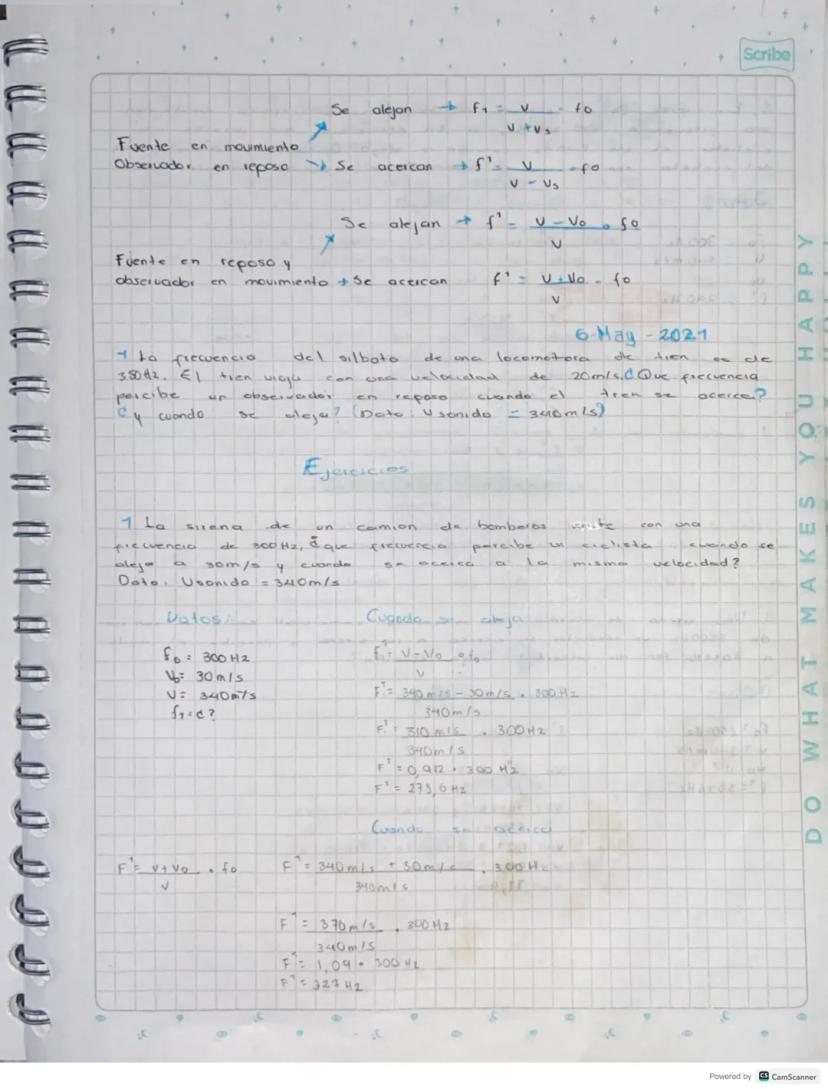 Scribe
Se alejan → f1 = v/(v + vs) · fo
Fuente en movimiento
Observador en reposo → Se acercan → f' = v/(v - vs) · fo
Se alejan → f' = (v - vo)/v · fo
Fuente en reposo y
observador en movimiento → Se acercan f' = (v + vo)/v · fo
6-May-2021
1 La frecuencia del silbato de una locomotora de tren es de
350Hz. El tren viaja con una velocidad de 20m/s. ¿Que frecuencia
percibe un observador en reposo cuando el tren se acerca?
¿y cuando se aleja? (Dato: Vsonido = 340m/s)
Ejercicios
1 La sirena de un camion de bomberos emite con una
frecuencia de 300 Hz, ¿que frecuencia percibe un ciclista cuando se
aleja a 30m/s y cuando se acerca a la misma velocidad?
Dato: Vsonido = 340m/s
Datos: Cuando se aleja
fo = 300Hz
Vo = 30m/s
V = 340m/s
f1 = ¿?
f' = (V - Vo)/V · fo
F' = (340m/s - 30m/s)/340m/s · 300Hz
F' = 310m/s/340m/s · 300Hz
F' = 0,912 · 300 Hz
F' = 273,6Hz
Cuando se acerca
F' = (v + vo)/v · fo F' = (340m/s + 30m/s)/340m/s · 300Hz
F' = 370m/s/340m/s · 300Hz
F' = 1,09 · 300 Hz
F' = 327Hz
DO WHAT MAKES YOU HAPPY
Powered by CS CamScanner